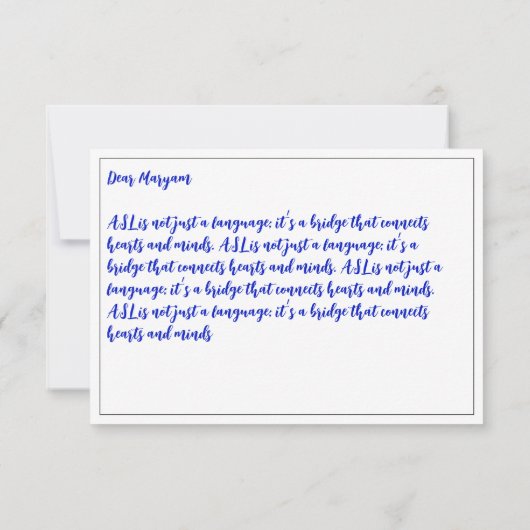 Dear Maryam
ASL is not just a language; it's a bridge that connects
hearts and minds. ASL is not just a language; it's a
bridge that connects hearts and minds. ASL is not just a
language; it's a bridge that connects hearts and minds.
ASL is not just a language; it's a bridge that connects
hearts and minds